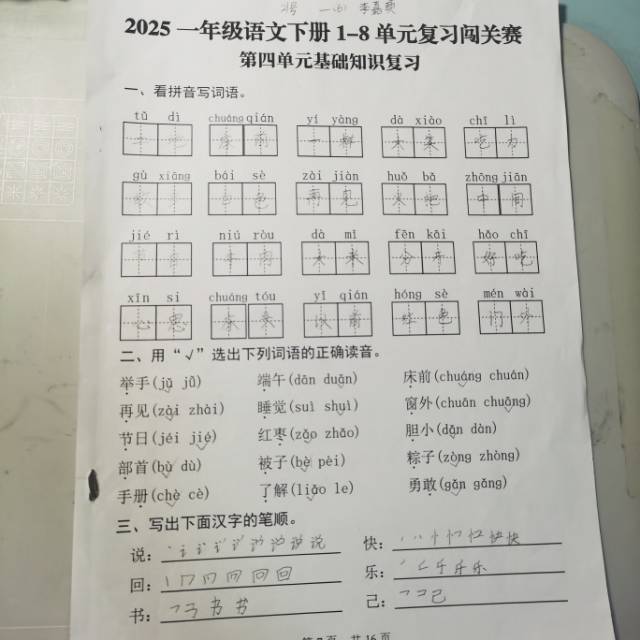 2号 一(6) 李嘉
2025 一年级语文下册 1-8 单元复习闯关赛
第四单元基础知识复习
一、看拼音写词语。
tǔ dì chuáng qián yí yàng dà xiǎo chī lì
土地 床前 一样 大小 吃力
gù xiāng bái sè zài jiàn huǒ bǎ zhōng jiān
故乡 白色 再见 火把 中间
jié rì niú ròu dà mǐ fēn kāi hǎo chī
节日 牛肉 大米 分开 好吃
xīn si chuáng tóu yǐ qián hóng sè mén wài
心思 床头 以前 红色 门外
二、用“√”选出下列词语的正确读音。
举手(jǔ jǜ) 端午(dān duān) 床前(chuáng chuán)
再见(zài zhài) 睡觉(suì shuì) 窗外(chuān chuāng)
节日(jéi jié) 红枣(zǎo zhǎo) 胆小(dǎn dàn)
部首(bù dù) 被子(bèi pèi) 粽子(zòng zhòng)
手册(chè cè) 了解(liǎo le) 勇敢(gǎn gǎng)
三、写出下面汉字的笔顺。
说： 说 快： 快
回： 回 乐： 乐
书： 书 己： 己
共 16 页